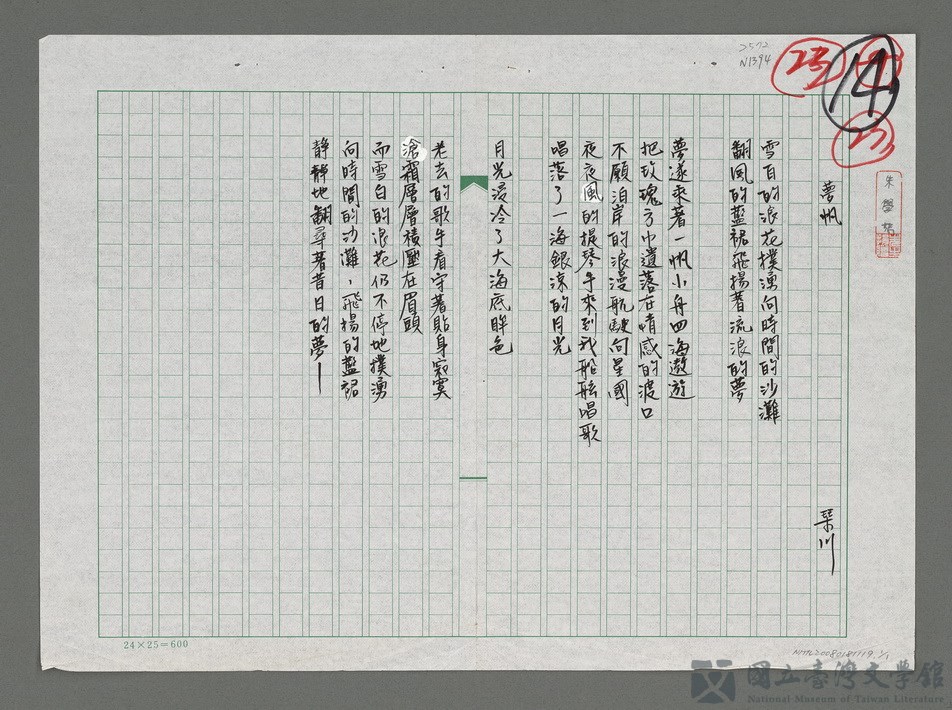 2572
N1394
23
14
23
朱學恕
夢帆
琹川
雪白的浪花撲湧向時間的沙灘
翻風的藍裙飛揚著流浪的夢
夢遂乘著一帆小舟四海遨遊
把玫瑰方巾遺落在情感的渡口
不願泊岸的浪漫航駛向星國
夜夜風的提琴手來到我船舷唱歌
唱落了一海銀涼的月光
月光浸冷了大海底眸色
老去的歌手看守著貼身寂寞
滄霜層層積壓在眉頭
而雪白的浪花仍不停地撲湧
向時間的沙灘，飛揚的藍裙
靜靜地翻尋著昔日的夢—
24×25=600
NMTL20080181119
國立臺灣文學館
National Museum of Taiwan Literature